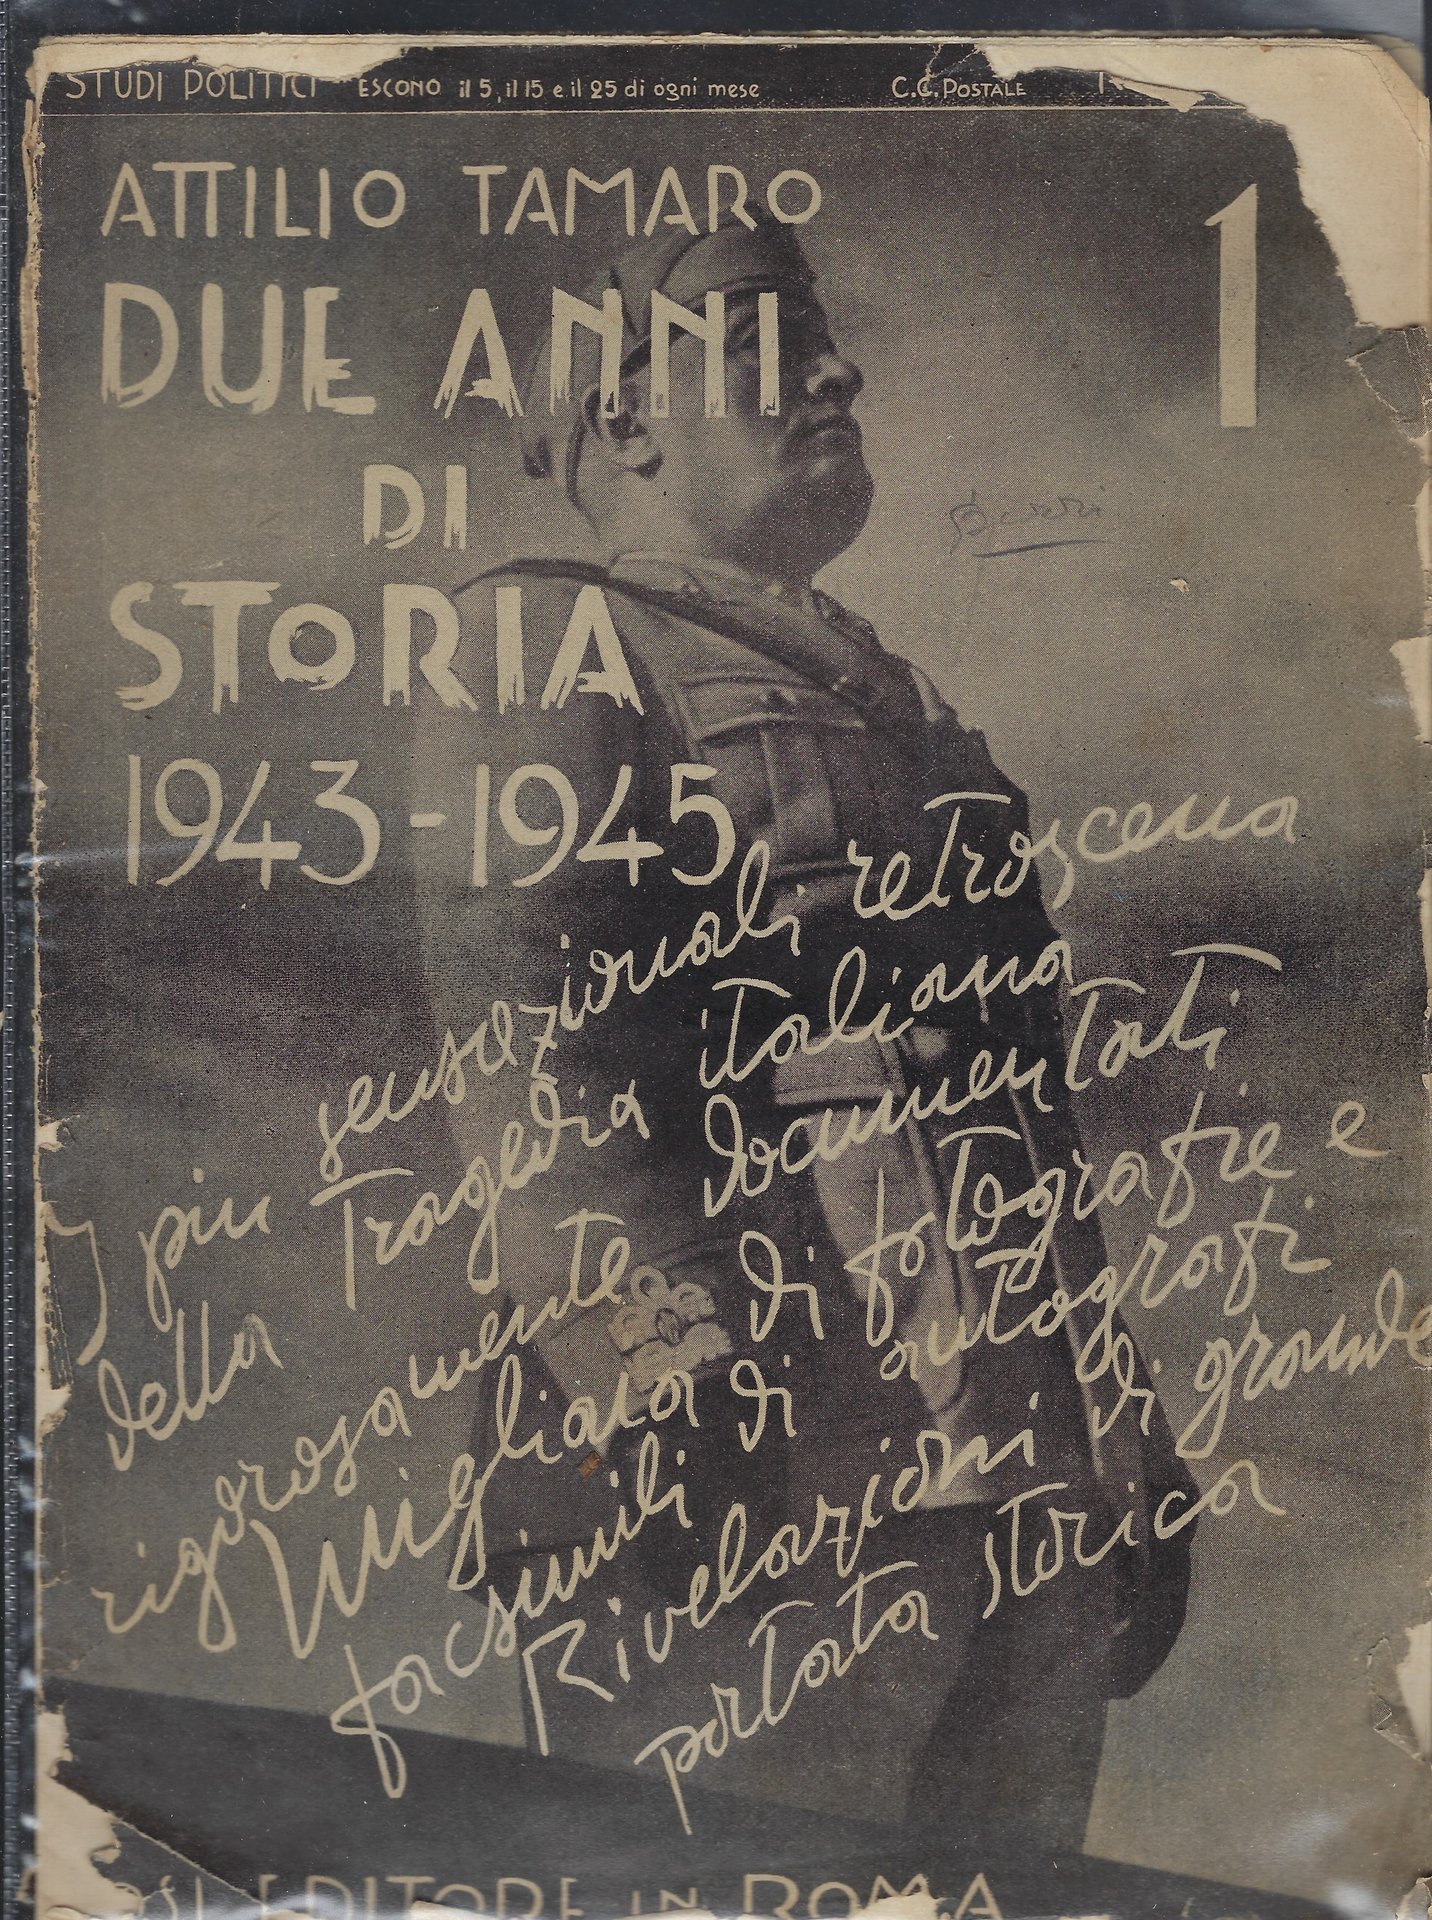 STUDI POLITICI - ESCONO il 5, il 15 e il 25 di ogni mese C.C. POSTALE
ATTILIO TAMARO
1
DUE ANNI
DI
STORIA
1943-1945
I piu sensazionali retroscena
della Tragedia italiana
rigorosamente documentati
Migliaia di fotografie e
facsimili di autografi
Rivelazioni di grande
portata storica
EDITORE IN ROMA